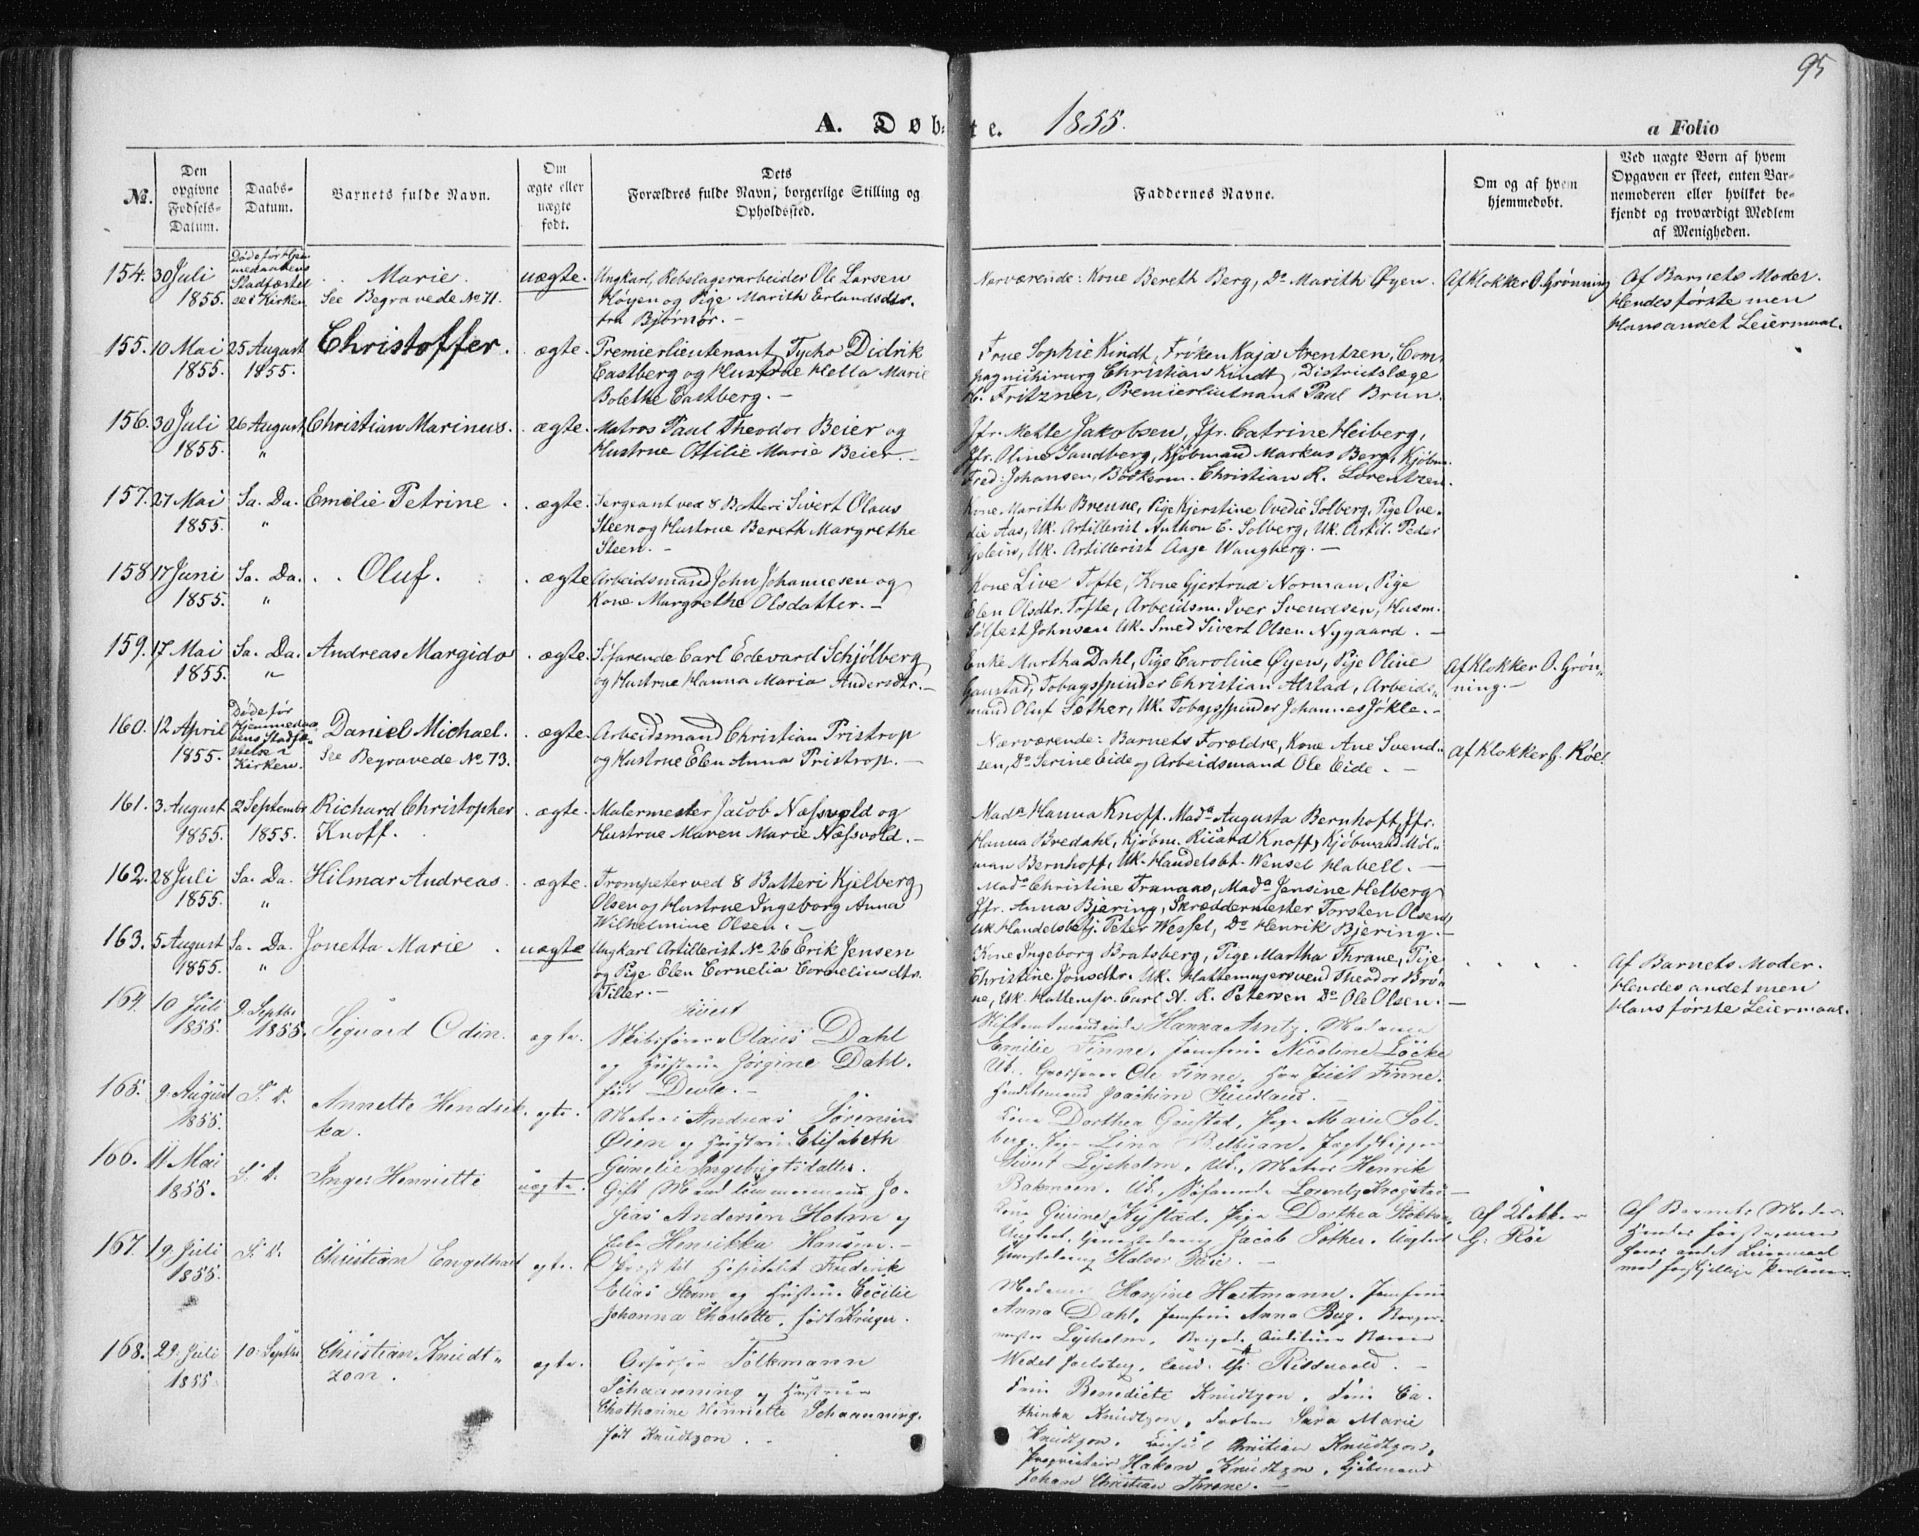 95
A. Døbte. 1855.
a Folio
No.
Den opgivne Fødsels-Datum.
Daabs-Datum.
Barnets fulde Navn.
Om ægte eller uægte født.
Dets Forældres fulde Navn, borgerlige Stilling og Opholdssted.
Faddernes Navne.
Om og af hvem hjemmedøbt.
Ved uægte Børn af hvem Opgaven er skeet, enten Barnemoderen eller hvilket bekjendt og troværdigt Medlem af Menigheden.
154. 30 Juli 1855.
Døde før Hjemmedaabens Stadfæstelse i Kirken
Marie.
See Begravede No 71.
uægte.
Ungkarl, Rebslagerarbeider Ole Larsen
Høyen og Pige Marith Erlandsdtr.
fra Bjørnør. —
Nærværende: Kone Bereth Berg, Do Marith Øyen.
Af Klokker O. Grønning
Af Barnets Moder.
Hendes første men
Hans andet Leiermaal.
155. 10 Mai 1855.
25 August 1855.
Christoffer.
ægte.
Premierlieutenant Tycho Didrik
Castberg og Hustrue Hella Marie
Bolethe Castberg. —
Frue Sophie Kindt, Frøken Kaja Arentzen, Com-
pagnichirurg Christian Kindt, Districtslæge
H. Fritzner, Premierlieutnant Paal Brun.
156. 30 Juli 1855.
26 August "
Christian Marinus.
ægte.
Matros Paal Theodor Beier og
Hustrue Ottilie Marie Beier. —
Jfr. Mette Jakobsen, Jfr. Catrine Heiberg,
Jfr. Oline Sandberg, Kjøbmand Markus Berg, Kjøbm.
Fred: Johansen, Bødkerm. Christian R. Lorentzen.
157. 27 Mai 1855.
Sa. Da. "
Emilie Petrine.
ægte.
Sergeant ved 8 Batteri Sivert Olaus
Steen og Hustrue Bereth Margrethe
Steen. —
Kone Marith Brenne, Pige Kjerstine Ovedie Solberg, Pige Ove-
die Aas, Uk. Artillerist Anthon E. Solberg, Uk. Artil. Peder
Gelein, Uk. Artillerist Aage Wangberg. —
158 17 Juni 1855.
Sa. Da. "
Oluf.
ægte
Arbeidsmand John Johannesen og
Kone Margrethe Olsdatter. —
Kone Live Tofte, Kone Gjertrud Norman, Pige
Elen Olsdtr. Tofte, Arbeidsm. Iver Svendsen, Husm.
Sølfest Johnsen Uk. Smed Sivert Olsen Nygaard. —
159. 17 Mai 1855.
Sa. Da. "
Andreas Margido
ægte.
Søfarende Carl Edevard Schjølberg
og Hustrue Hanna Maria Andersdtr. —
Enke Martha Dahl, Pige Caroline Øyen, Pige Oline
Ganstad, Tobagsspinder Christian Alstad, Arbeids-
mand Oluf Sæther, Uk. Tobagsspinder Johannes Jøkle. —
Af Klokker O. Grøn-
ning. —
160. 12 April 1855.
Døde før Hjemmedaabens Stadfæstelse i Kirken.
Daniel Michael.
See Begravede No 73.
ægte.
Arbeidsmand Christian Pristrop
og Hustrue Elen Anna Pristrop. —
Nærværende: Barnets Forældre, Kone Ane Svend-
sen, Do Serine Eide og Arbeidsmand Ole Eide. —
Af Klokker G. Røe.
161. 3 August 1855.
2 Septembr 1855.
Richard Christopher
Knoff.
ægte.
Malermester Jacob Næssvold og
Hustrue Maren Marie Næssvold. —
Mada Hanna Knoff. Mada Augusta Bernhoft, Jfr.
Hanna Bredahl, Kjøbm. Ricard Knoff, Kjøbmand Møl-
man Bernhoff, Uk. Handelsbt. Wensel Habell. —
162. 28 Juli 1855.
Sa. Da. "
Hilmar Andreas.
ægte.
Trompeter ved 8 Batteri Kjelberg
Olsen og Hustrue Ingeborg Anna
Wilhelmine Olsen. —
Mada Christine Tranaas, Mada Jensine Helberg
Jfr. Anna Bjering, Skræddermester Torsten Olsen,
Uk Handelsbtj. Peter Wessel, Do Henrik Bjering. —
163. 5 August 1855.
Sa. Da. "
Jonetta Marie.
uægte
Ungkarl Artillerist No 26 Erik Jensen
og Pige Elen Cornelia Corneliusdtr.
Tiller. —
Kone Ingeborg Bratsberg, Pige Martha Thrane, Pige
Christine Jonsdtr. Uk. Hattemagersvend Theodor Brø-
ne, Uk. Hattemsv. Carl N. R. Petersen Do Ole Olsen. —
Af Barnets Moder.
Hendes andet men
Hans første Leiermaal.
164. 10 Juli 1855.
9 Septbr 1855.
Sigvard Odin.
ægte.
Sivert
Skibsfører Olaus Dahl
og Hustrue Jørgine Dahl.
født Devle. —
Hanna Arntz. Madame
Emilie Finne, Jomfrue Nicoline Løcke
Uk. Ole Finne, Herr Juul Finne.
Handelsmand Joachim
165. 9 August 1855.
S. D.
Annette Hendrik-
ka.
ægte.
Matros Andreas Sørensen
Øien og Hustrue Elisabeth
Gurnelie Ingebrigtsdatter.
Kone Dorthea Ganstad, Pige Marie Sol-
berg, Pige Lina Bellman,
Sivert Lysholm, Uk., Matros Henrik
Bakmoen, Uk. Søfarende Lorentz Krogstad —
166. 11 Mai 1855.
S. D.
Inger Henriette
uægte.
Gift Mand Tømmermand Jo-
sias Andersen Holm og
Henrikka Hansen. —
Kone Gurine Kystad, Pige Dorthea Stokkan,
Jacob Sæther,
Halvor Røe. —
Af Klokker
G. Røe
Af Barnets Moder
Hendes første men
Hans andet Leiermaal
med forskjellige Personer
167. 19 Juli 1855.
S. D.
Christian Engelhart
ægte.
Præst til Hospitalet Frederik
Elias Horn og Hustrue Cecilie
Johanna Charlotte, født Krüger.
Madame Hansine Hartmann. Jomfrue
Anna Dahl, Jomfrue Anna Bug, Borger-
mester Lysholm, Brigade Auditeur Baron
Wedel Jarlsberg, Cand. Riddervold. —
168. 29. Juli 1855.
10 Septbr
Christian Knudt-
zon.
ægte.
Assessor Folkmann
Schaanning og Hustrue
Chatharine Henriette Schaanning,
født Knudtzon.
Frue Benedicte Knudtzon, Frue Ca-
thinka Knudtzon, Frøken Sara Marie
Knudtzon, Consul Christian Knudtzon,
Proprietair Hakon Knudtzon, Kjøbmand
Johan Christian Thrane. —